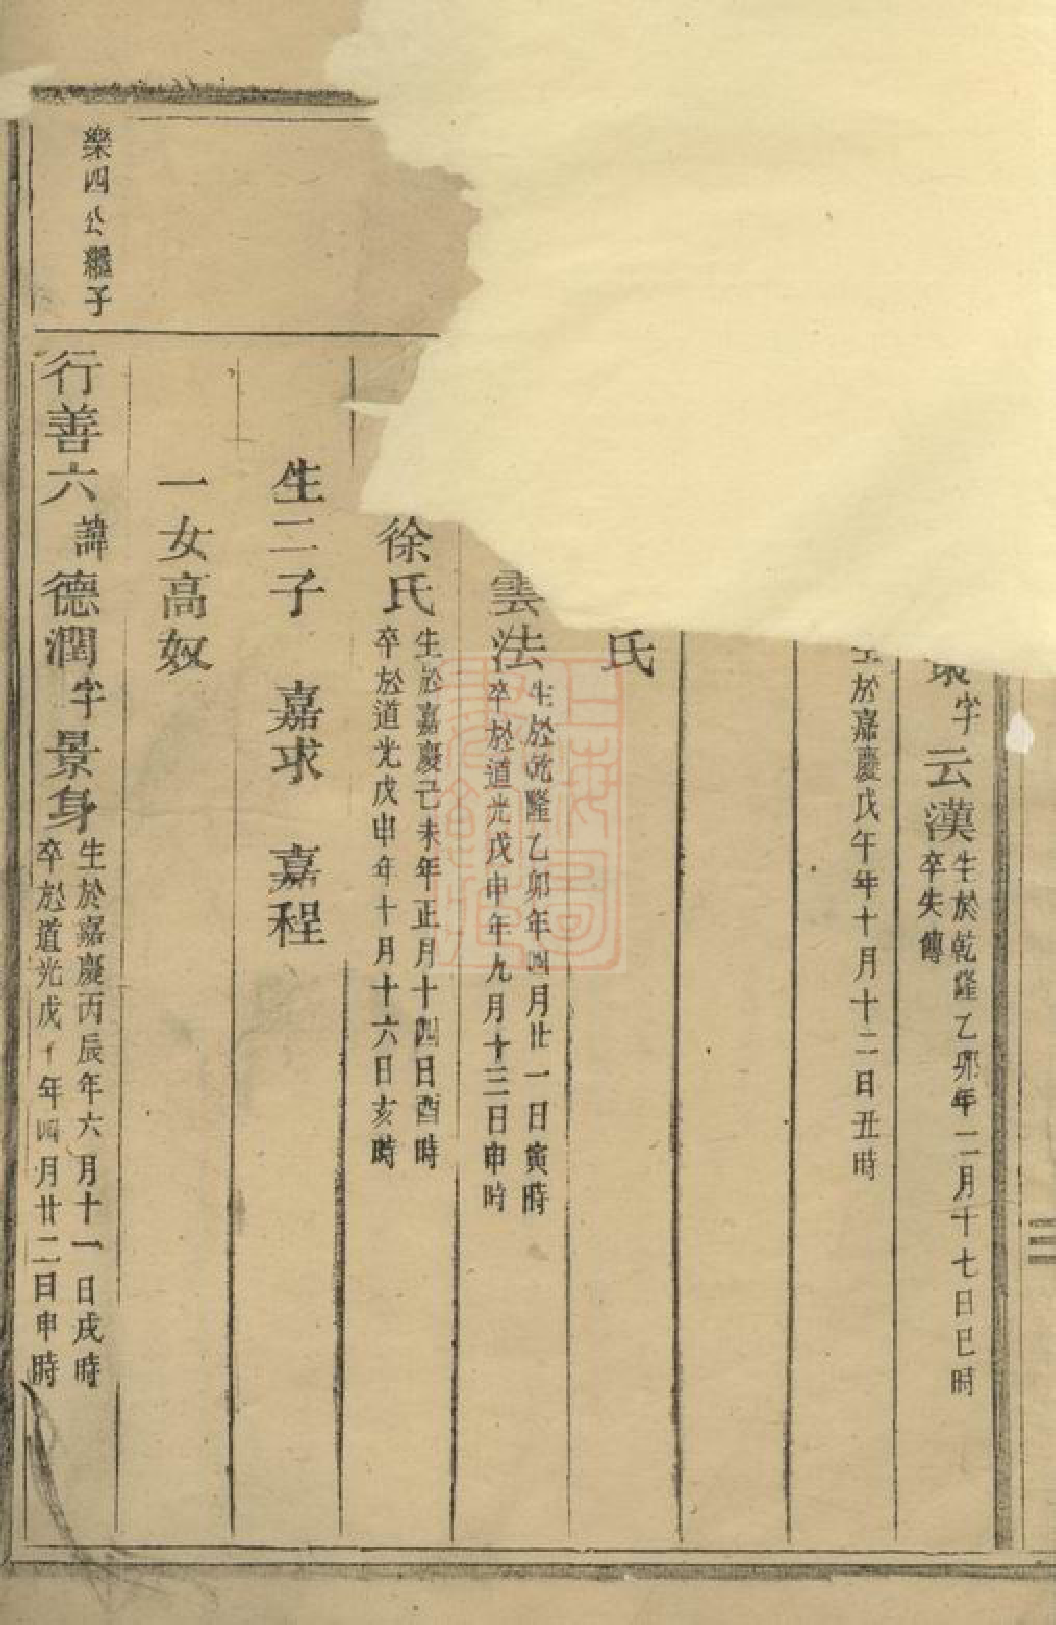 字云漢生於乾隆乙卯年二月十七日巳時
卒失傳
於嘉慶戊午年十月十二日丑時
氏
雲法生於乾隆乙卯年四月廿一日寅時
卒於道光戊申年九月十三日申時
徐氏生於嘉慶己未年正月十四日酉時
卒於道光戊申年十月十六日亥時
生二子 嘉求 嘉程
一女高奴
樂四公繼子
行善六諱德潤字景身生於嘉慶丙辰年六月十一日戌時
卒於道光戊年四月廿二日申時